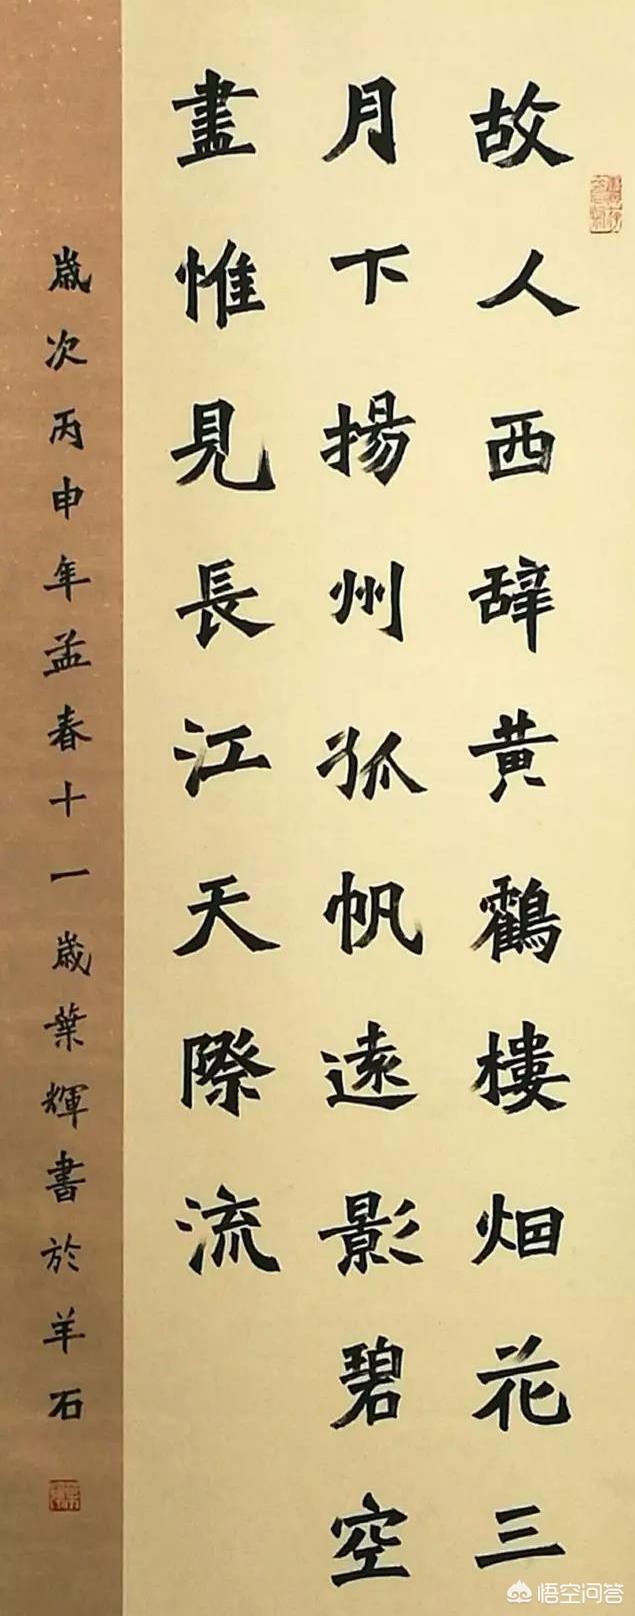 故人西辞黄鶴樓畑花三
月下揚州孤帆遠影碧空
盡惟見長江天際流
歲次丙申年孟春十一歲葉輝書於羊石
悟空问答